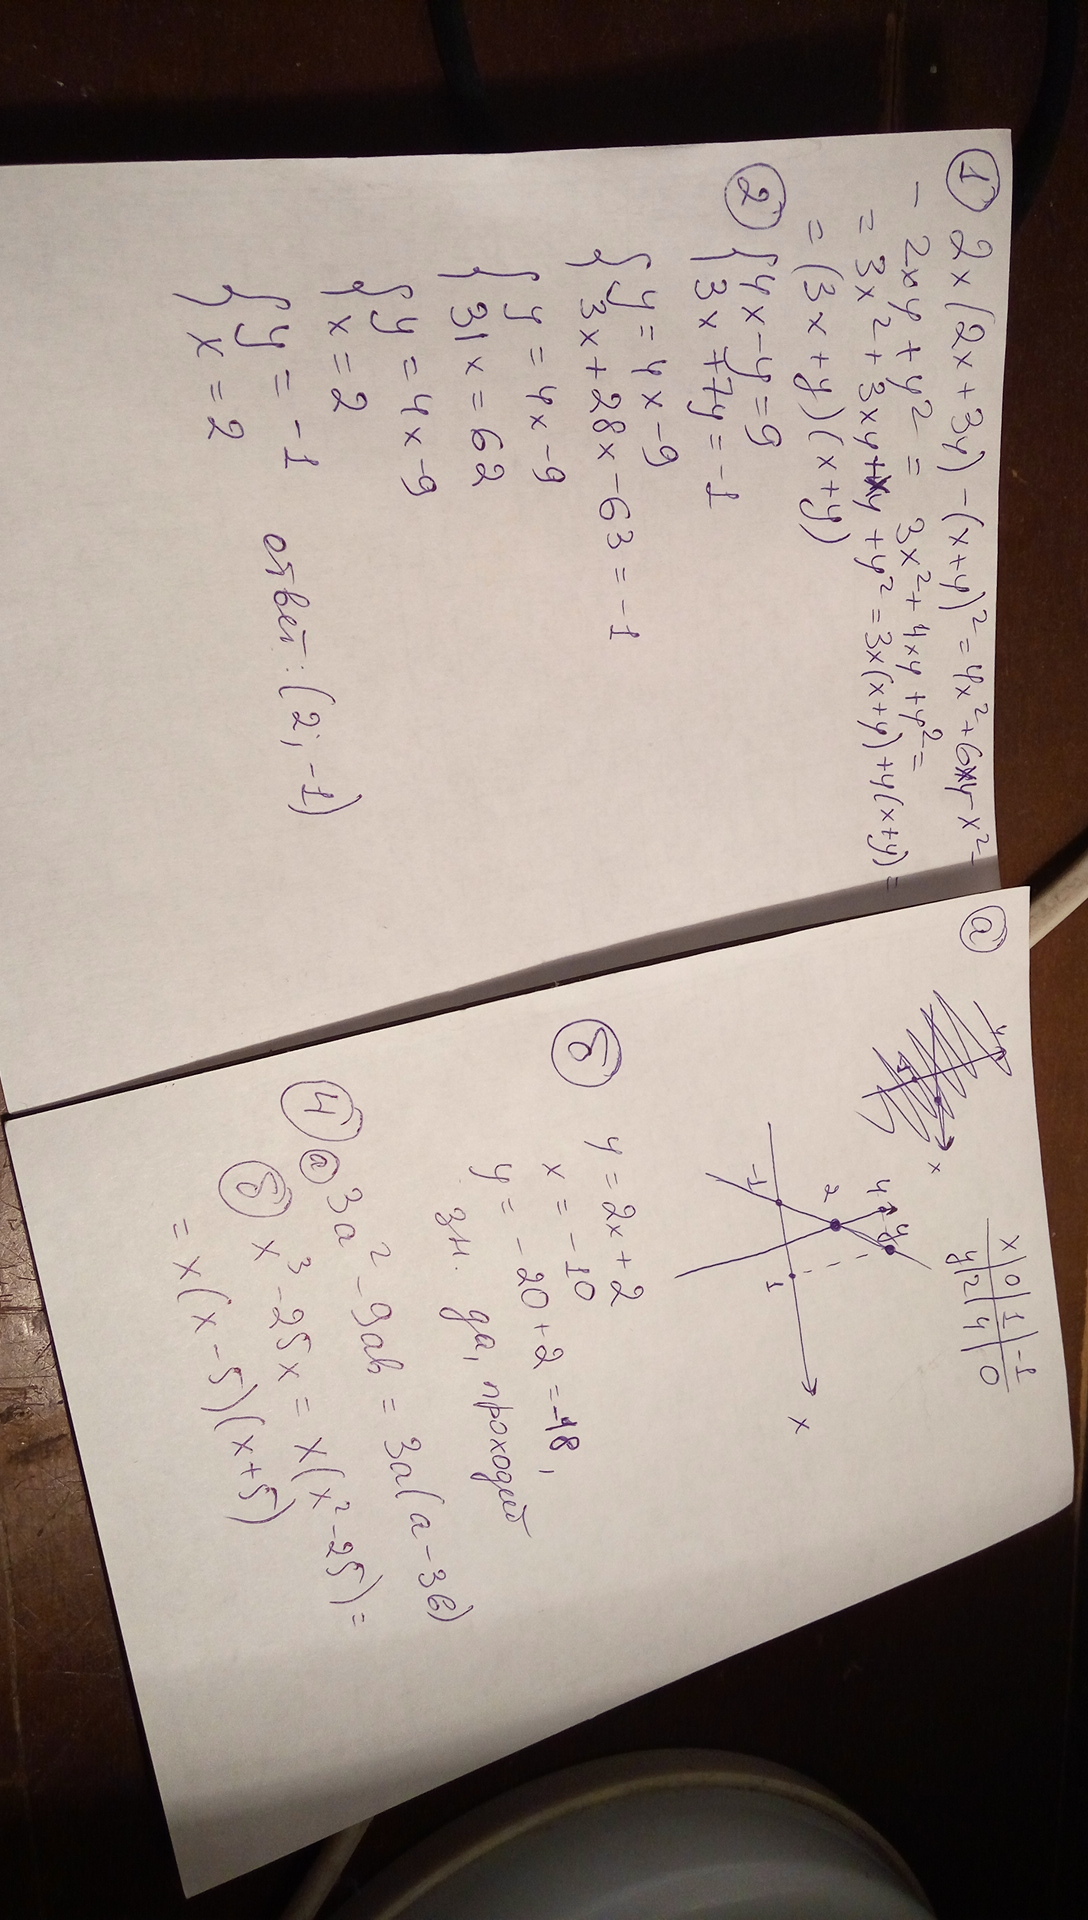 ① 2x(2x+3y)-(x+y)²=4x²+6xy-x²-
-2xy+y²= 3x²+4xy+y²=
=3x²+3xy+xy+y²=3x(x+y)+y(x+y)=
=(3x+y)(x+y)
② {4x-y=9
3x+7y=-1
{y=4x-9
3x+28x-63=-1
{y=4x-9
31x=62
{y=4x-9
x=2
{y=-1
x=2
ответ: (2; -1)
ⓐ
x|0|1|-1
y|2|4|0
y
4
2
-1
1
x
б y=2x+2
x=-10
y=-20+2=-18,
зн. да, проходит
④ ⓐ 3a²-9ab=3a(a-3b)
б x³-25x=x(x²-25)=
=x(x-5)(x+5)